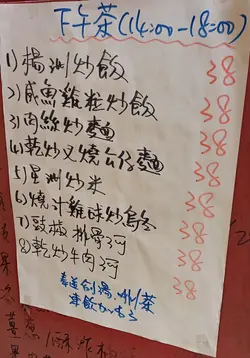 下午茶(14:00-18:00)
1) 楊洲炒飯 38
2) 咸魚雞粒炒飯 38
3) 肉絲炒麵 38
4) 乾炒叉燒公仔麵 38
5) 星洲炒米 38
6) 燒汁雞球炒烏冬 38
7) 豉椒排骨河 38
8) 乾炒牛肉河 38
奉送例湯, 茶
凍飲